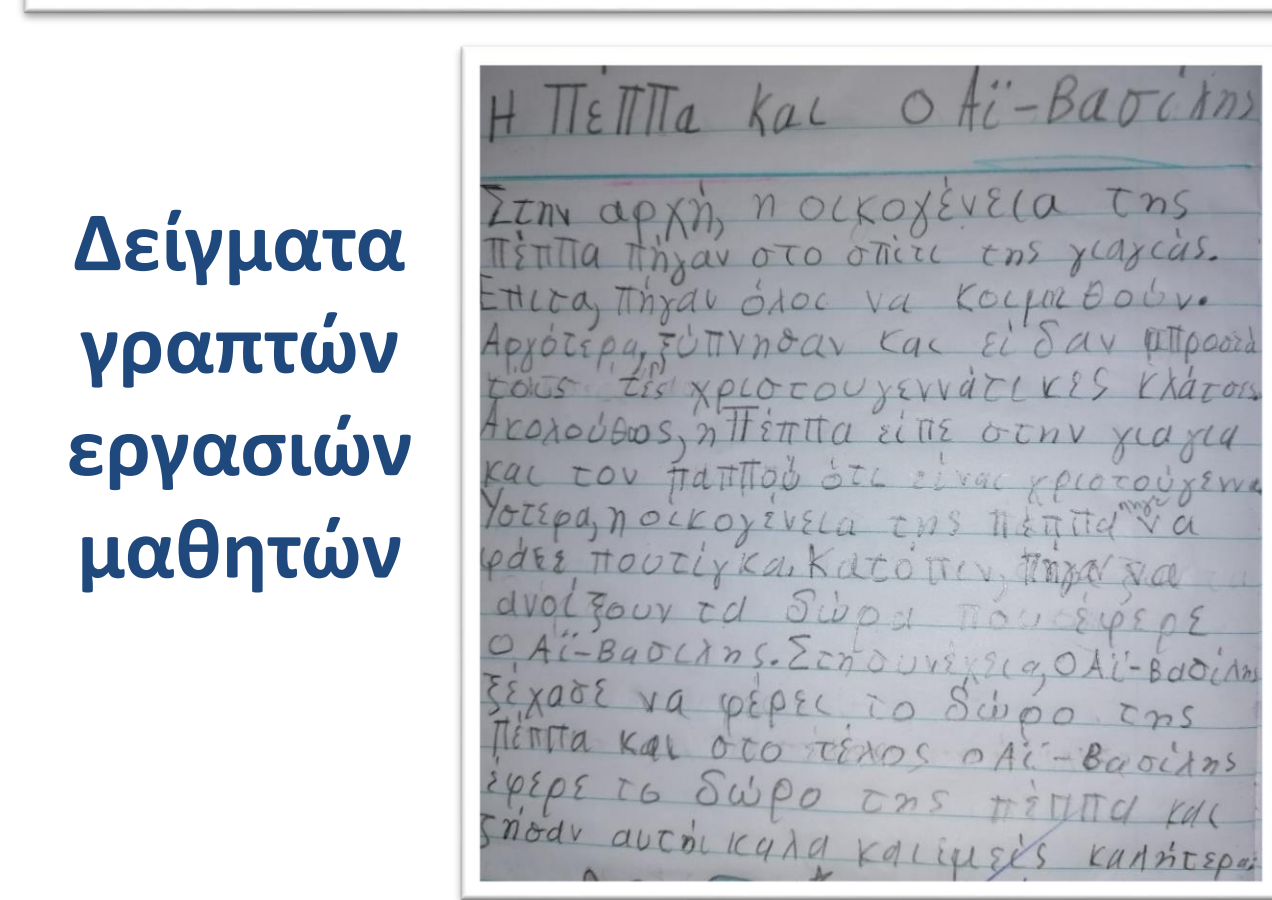 Δείγματα
γραπτών
εργασιών
μαθητών
Η Πέππα και ο Αϊ-Βασίλης
Στην αρχή, η οικογένεια της
πέππα πήγαν στο σπίτι της γιαγιάς.
Επιτα, πήγαν όλοι να κοιμηθούν.
Αργότερα, ξύπνησαν και είδαν μπροστά
τους τις χριστουγεννάτικες κλάτσες
Ακολούθως, η Πέππα είπε στην γιαγια
και τον παππού ότι είναι χριστούγεννα
Υστερα, η οικογένεια της πέππα πήγε να
φάει πουτίγκα. Κατόπιν, πήγαν να
ανοίξουν τα δώρα που έφερε
Ο Αϊ-Βασίλης. Στη συνέχεια, Ο Αϊ-Βασίλης
ξέχασε να φέρει το δώρο της
πέππα και στο τέλος ο Αϊ-Βασίλης
έφερε το δώρο της πέππα και
ζήσαν αυτήι καλα και εμείς καλήτερα.